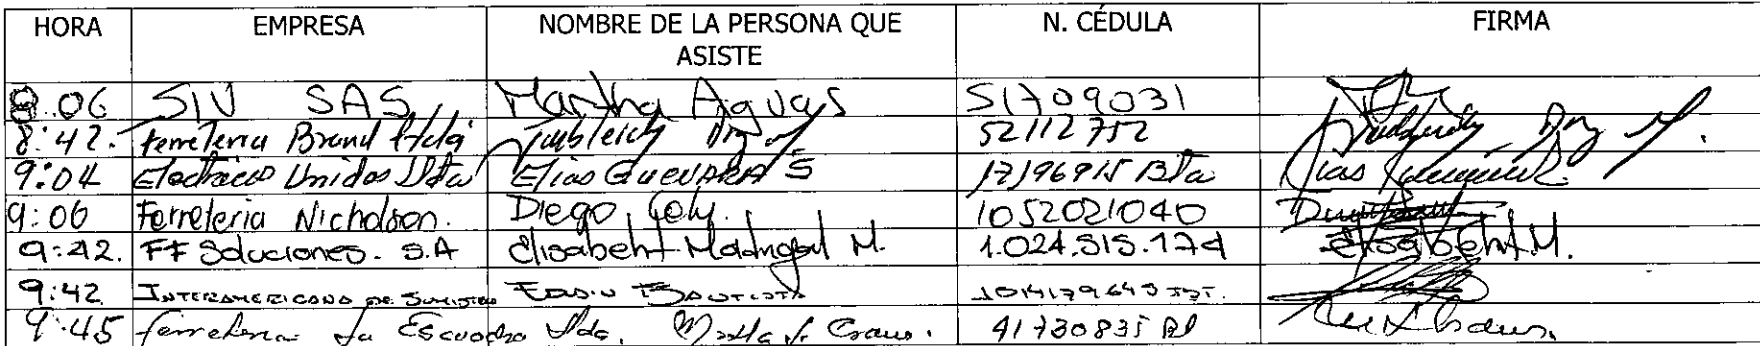 HORA EMPRESA NOMBRE DE LA PERSONA QUE ASISTE N. CÉDULA FIRMA
8:06 SIV SAS Martha Aguas 51709031
8:42. Ferreteria Brand Ltda 52112752
9:04 Electricos Unidos Ltda Elias GUEVARA S 17196915 Bta
9:06 Ferreteria Nicholson. Diego Coly. 1052021040
9:42. FF Soluciones. S.A Elisabeht Madrigal M. 1.024.515.174 Elisabeht M.
9:42 INTERAMERICANA DE SUMINISTROS EDSIN BAUTISTA
9:45 ferreteria La Escuadra Ltda. 41730835